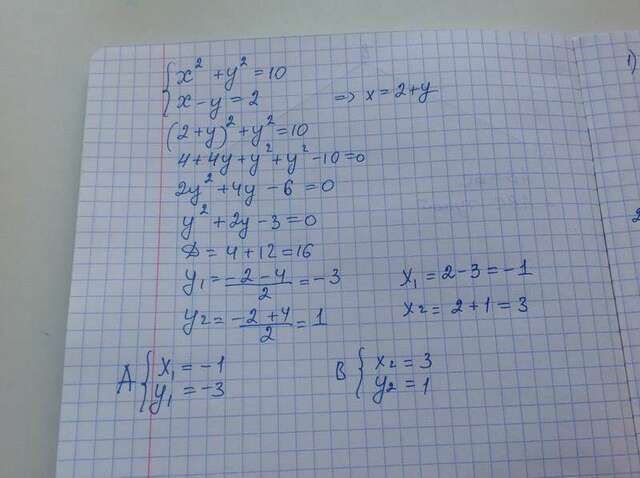 { x² + y² = 10
x - y = 2 => x = 2+y
(2+y)² + y² = 10
4 + 4y + y² + y² - 10 = 0
2y² + 4y - 6 = 0
y² + 2y - 3 = 0
D = 4 + 12 = 16
y₁ = (-2 - 4)/2 = -3 x₁ = 2 - 3 = -1
y₂ = (-2 + 4)/2 = 1 x₂ = 2 + 1 = 3
A { x₁ = -1 B { x₂ = 3
y₁ = -3 y₂ = 1
1)
2